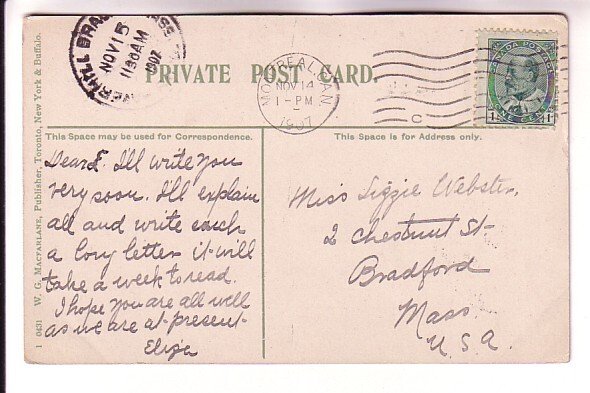 NOV 15
1130AM
1907
PRIVATE POST CARD.
MONTREAL, CAN
NOV 14
1-PM
1907
C
CANADA POSTAGE
1 1
This Space may be used for Correspondence.
This Space is for Address only.
Dear E. I'll write you
very soon. I'll explain
all and write such
a long letter it will
take a week to read.
I hope you are all well
as we are at present
Eliza
Miss Lizzie Webster,
2 Chestnut St
Bradford
Mass
U.S.A.
1 0431 W. G. MACFARLANE, Publisher, Toronto, New York & Buffalo.